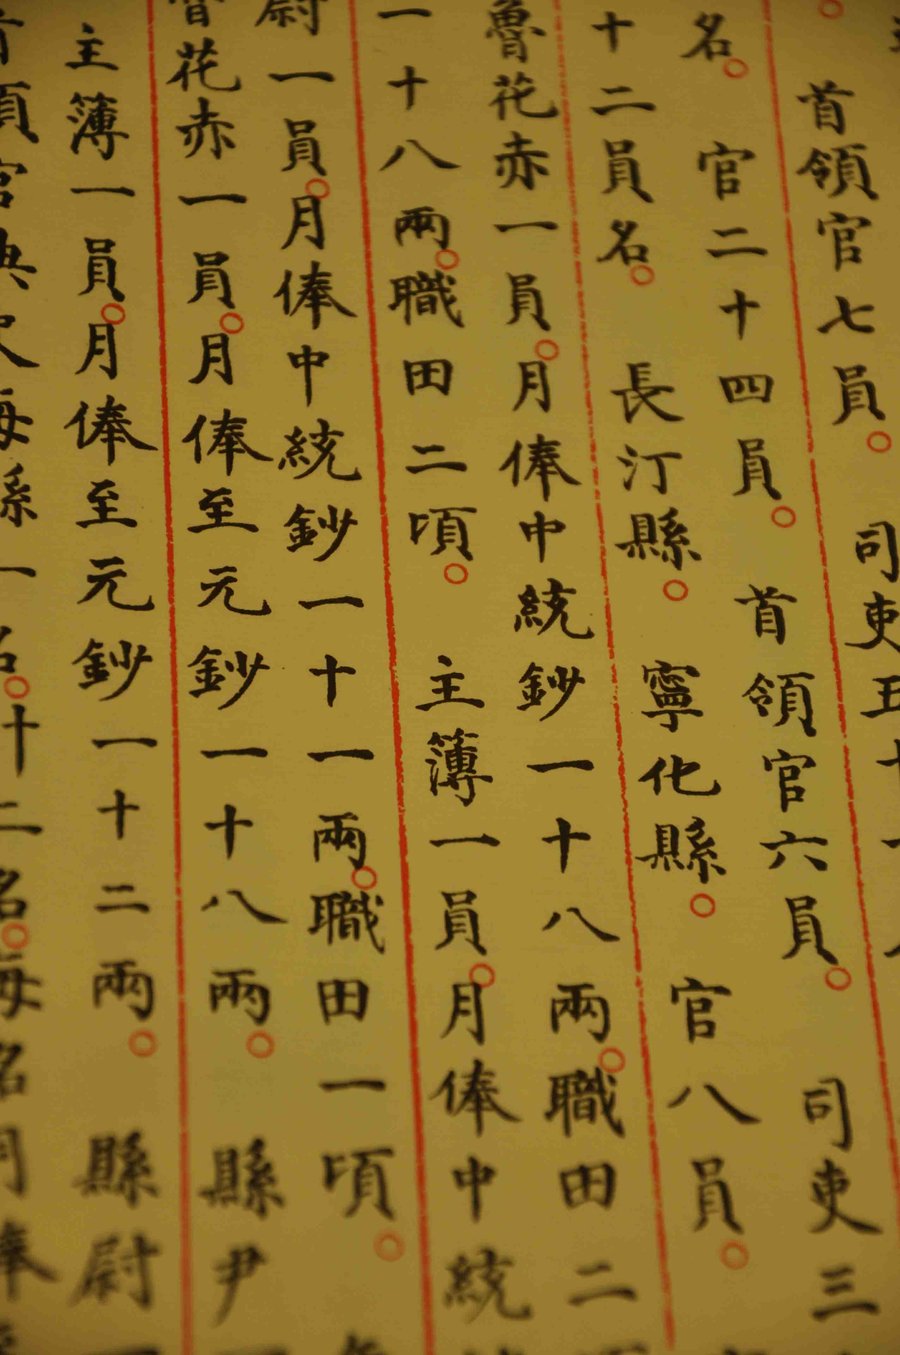 首領官七員。司吏五十一
名。官二十四員。首領官六員。司吏三
十二員名。長汀縣。寧化縣。官八員。
魯花赤一員。月俸中統鈔一十八兩。職田二
一十八兩。職田二頃。主簿一員。月俸中統
尉一員。月俸中統鈔一十一兩。職田一頃。
魯花赤一員。月俸至元鈔一十八兩。縣尹
主簿一員。月俸至元鈔一十二兩。縣尉
領官典史每縣一名。十二名。每名月俸